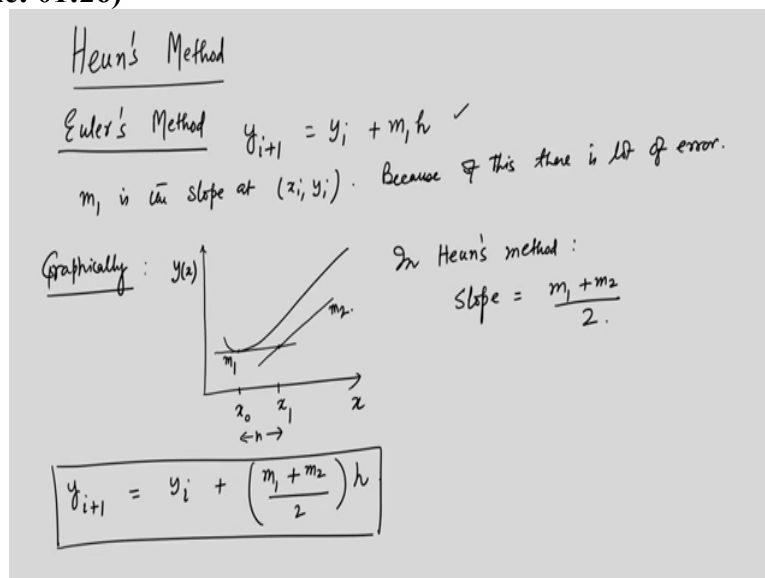 Heun's Method
Euler's Method y_{i+1} = y_i + m_1 h ✓
m_1 is the slope at (x_i, y_i). Because of this there is lot of error.
Graphically : y(x)
m_2.
m_1
x_0 x_1 x
←h→
In Heun's method :
Slope = \frac{m_1 + m_2}{2}.
y_{i+1} = y_i + \left(\frac{m_1 + m_2}{2}\right) h